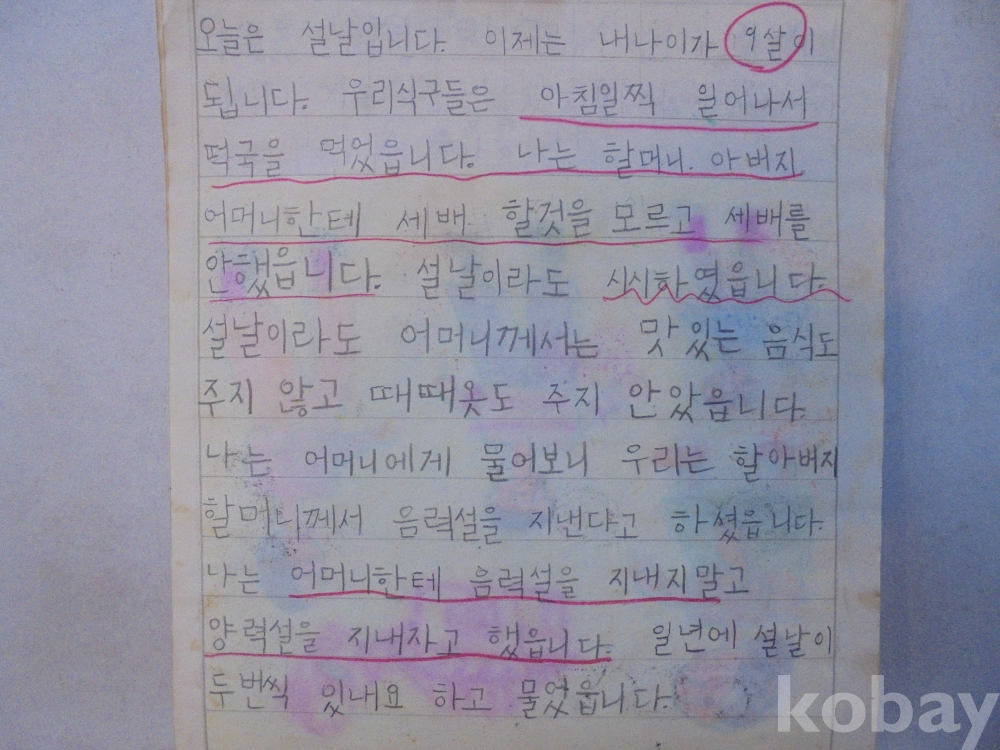 오늘은 설날입니다. 이제는 내나이가 9살이
됩니다. 우리식구들은 아침일찍 일어나서
떡국을 먹었읍니다. 나는 할머니. 아버지
어머니한테 세배 할것을 모르고 세배를
안했읍니다. 설날이라도 시시하였읍니다.
설날이라도 어머니께서는 맛있는 음식도
주지 않고 때때옷도 주지 안았읍니다.
나는 어머니에게 물어보니 우리는 할아버지
할머니께서 음력설을 지낸다고 하셨읍니다.
나는 어머니한테 음력설을 지내지말고
양력설을 지내자고 했읍니다. 일년에 설날이
두번씩 있내요 하고 물었읍니다.
kobay